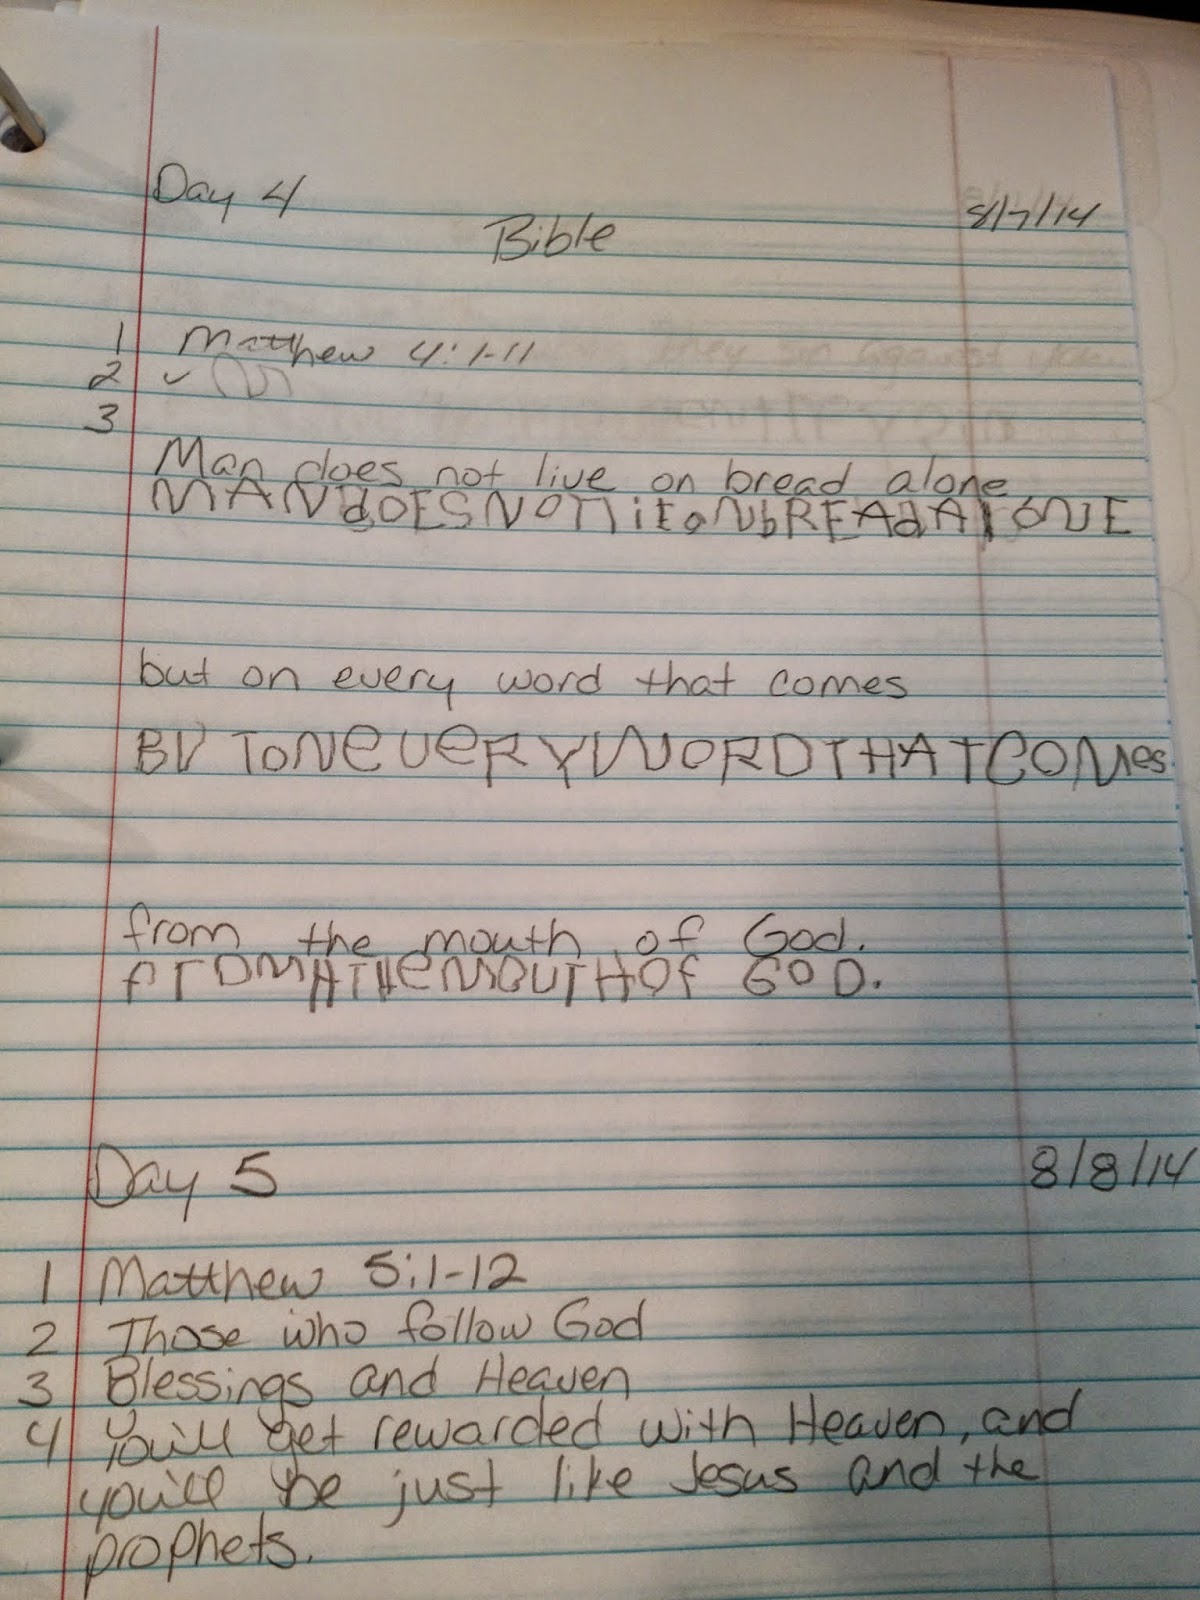 Day 4
8/7/14
Bible
1 Matthew 4:1-11
2 ✓
3
Man does not live on bread alone
MANdOESNOTliEoNbREAdAlONE
but on every word that comes
BUTToNeVeRYWORDTHATCOMes
from the mouth of God.
frOMHTHeMOUTHOf GOD.
Day 5 8/8/14
1 Matthew 5:1-12
2 Those who follow God
3 Blessings and Heaven
4 You'll get rewarded with Heaven, and
you'll be just like Jesus and the
prophets.